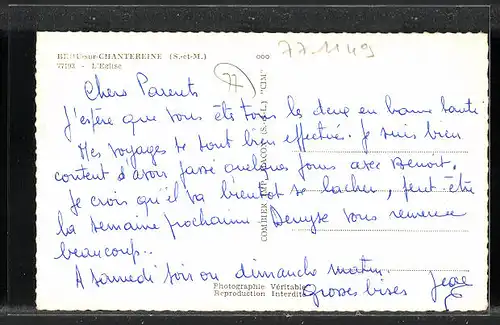 BROU-sur-CHANTEREINE (S.-et-M.)
77193 - L'Eglise
000
77-1149
77
Chers Parents
J'espère que vous êtes tous les deux en bonne santé
Mes voyages se sont bien effectués. Je suis bien
content d'avoir passé quelques jours avec Benoit.
Je crois qu'il va bientôt se lâcher, peut-être
la semaine prochaine. Denyse vous remercie
beaucoup..
A samedi soir ou dimanche matin.
Grosses bises
COMBIER IMP. MACON (S.-&-L.) "CIM"
Photographie Véritable
Reproduction Interdite